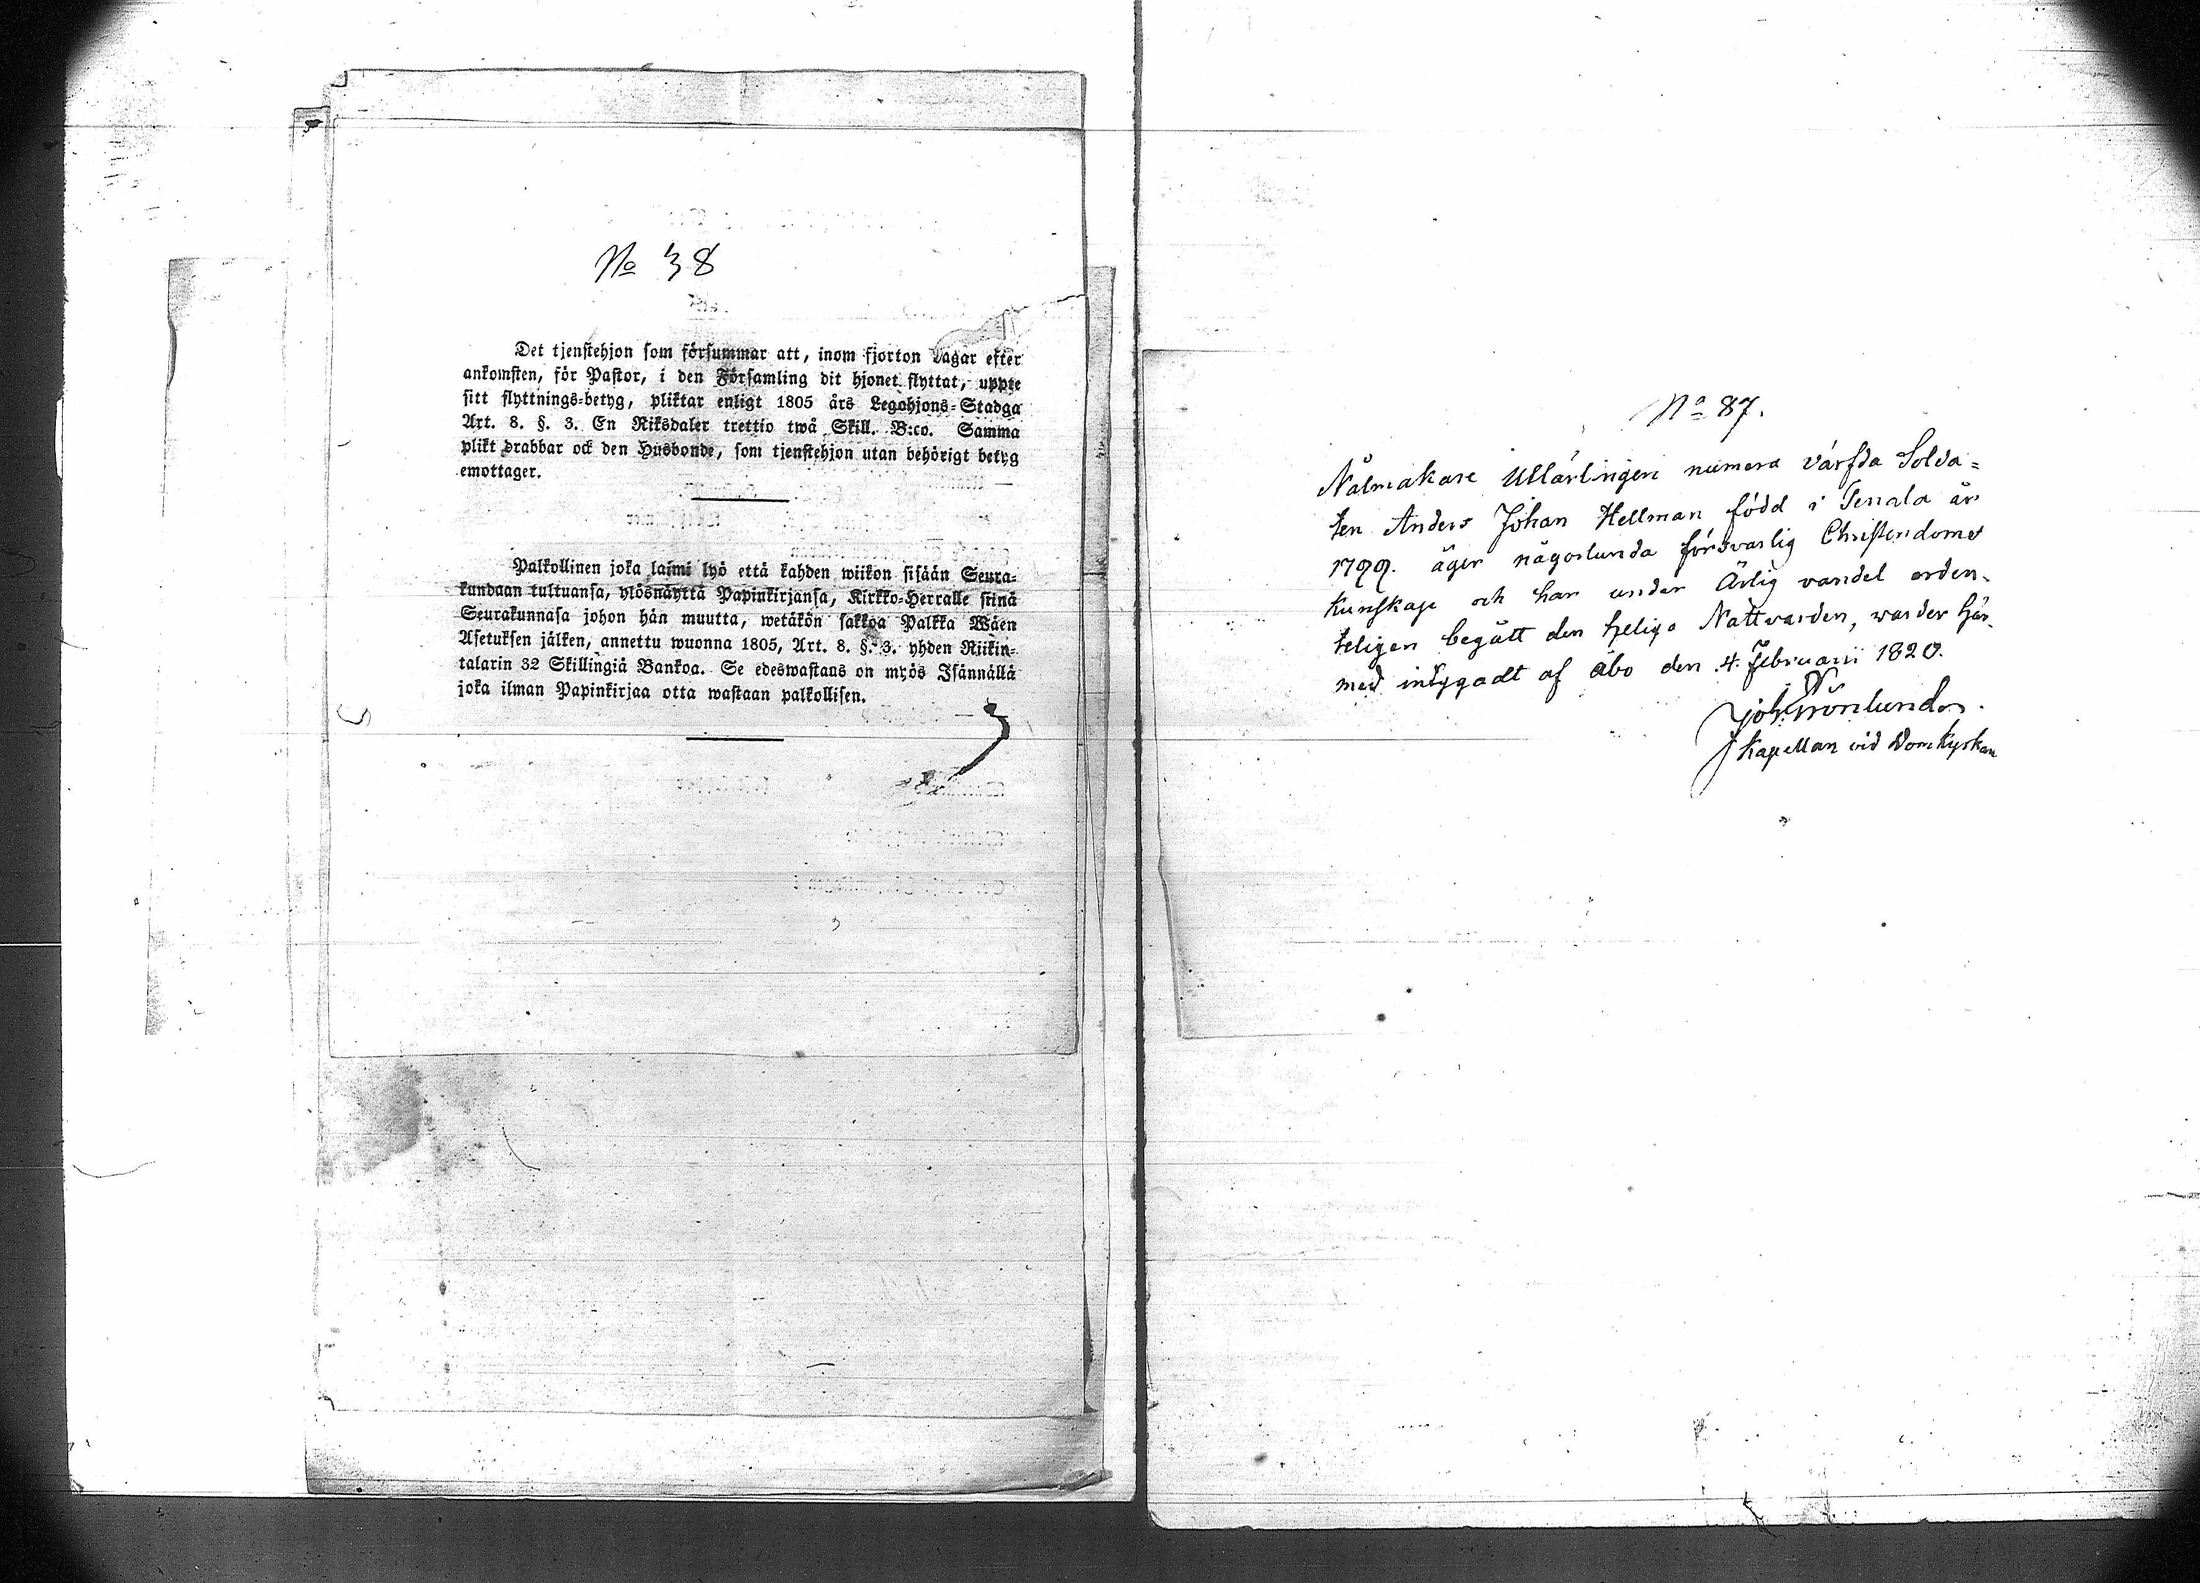 No 38
Det tjenstehjon som försummar att, inom fjorton dagar efter
ankomsten, för Pastor, i den Församling dit hjonet flyttat, uppte
sitt flyttnings=betyg, pliktar enligt 1805 års Legohjons=Stadga
Art. 8. §. 3. En Riksdaler trettio twå Skill. B:co. Samma
plikt drabbar ock den Husbonde, som tjenstehjon utan behörigt betyg
emottager.
Palkollinen joka laimi lyö että kahden wiikon sisään Seura=
kundaan tultuansa, ylösnäyttä Papinkirjansa, Kirkko=Herralle siinä
Seurakunnasa johon hän muutta, wetäkön sakkoa Palkka Wäen
Asetuksen jälken, annettu wuonna 1805, Art. 8. §. 3. yhden Riikin=
talarin 32 Skillingiä Bankoa. Se edeswastaus on myös Isännällä
joka ilman Papinkirjaa otta wastaan palkollisen.
No 87.
Nålmakare numera värfda Solda=
ten Anders Johan Hellman född i Tenala år
1799. äger någorlunda försvarlig Christendoms
kunskap och har under Ärlig vandel orden=
teligen begått den heliga Nattvarden, warder här=
med intygadt af Åbo den 4 Februarii 1820.
Joh. Grönlund
Kapellan vid Domkyrkan